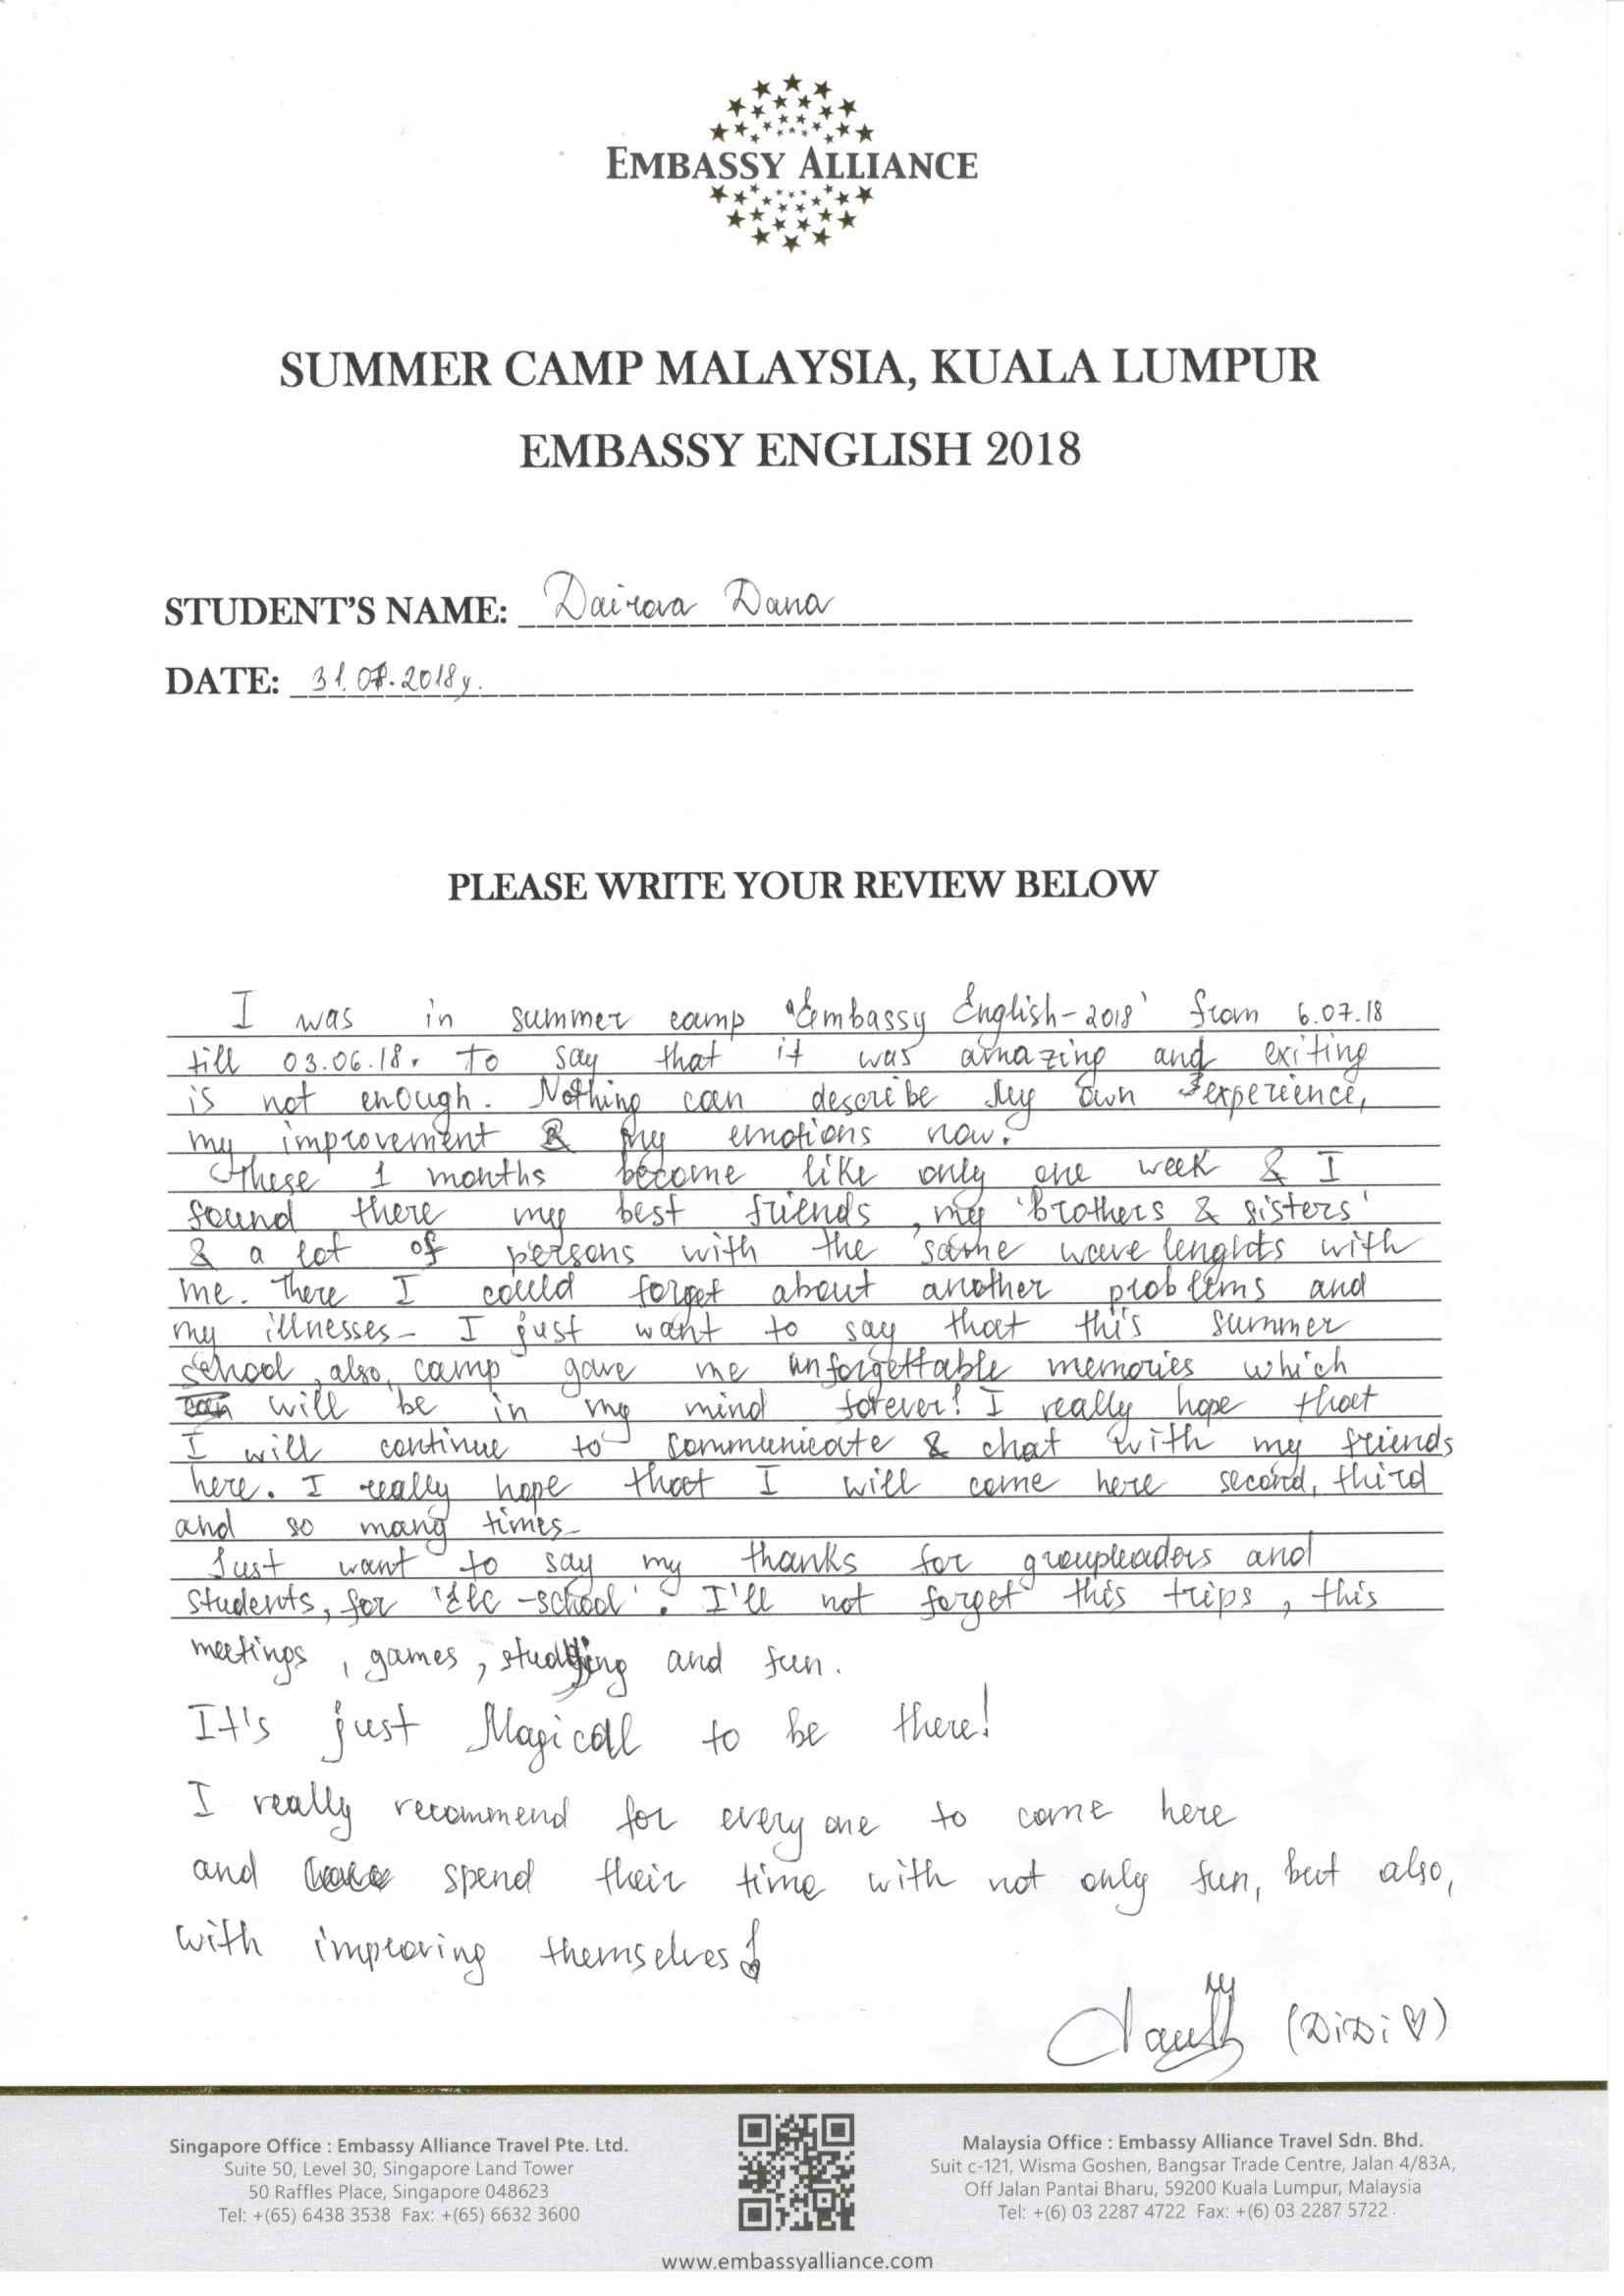 EMBASSY ALLIANCE
SUMMER CAMP MALAYSIA, KUALA LUMPUR
EMBASSY ENGLISH 2018
STUDENT'S NAME: Dairova Dana
DATE: 31.07.2018y.
PLEASE WRITE YOUR REVIEW BELOW
I was in summer camp "Embassy English-2018" from 6.07.18
till 03.06.18. To say that it was amazing and exiting
is not enough. Nothing can describe My own experience,
my improvement & my emotions now.
These 1 months become like only one week & I
found there my best friends, my 'brothers & sisters'
& a lot of persons with the same wave lenghts with
me. There I could forget about another problems and
my illnesses. I just want to say that this summer
school, also, camp gave me unforgettable memories which
will be in my mind forever! I really hope that
I will continue to communicate & chat with my friends
here. I really hope that I will come here second, third
and so many times.
Just want to say my thanks for groupleaders and
students, for 'ELC-school'. I'll not forget this trips, this
meetings, games, studying and fun.
It's just Magical to be there!
I really recommend for every one to come here
and spend their time with not only fun, but also,
with improving themselves!
(DiDi ♡)
Singapore Office : Embassy Alliance Travel Pte. Ltd.
Suite 50, Level 30, Singapore Land Tower
50 Raffles Place, Singapore 048623
Tel: +(65) 6438 3538 Fax: +(65) 6632 3600
Malaysia Office : Embassy Alliance Travel Sdn. Bhd.
Suit c-121, Wisma Goshen, Bangsar Trade Centre, Jalan 4/83A,
Off Jalan Pantai Bharu, 59200 Kuala Lumpur, Malaysia
Tel: +(6) 03 2287 4722 Fax: +(6) 03 2287 5722
www.embassyalliance.com